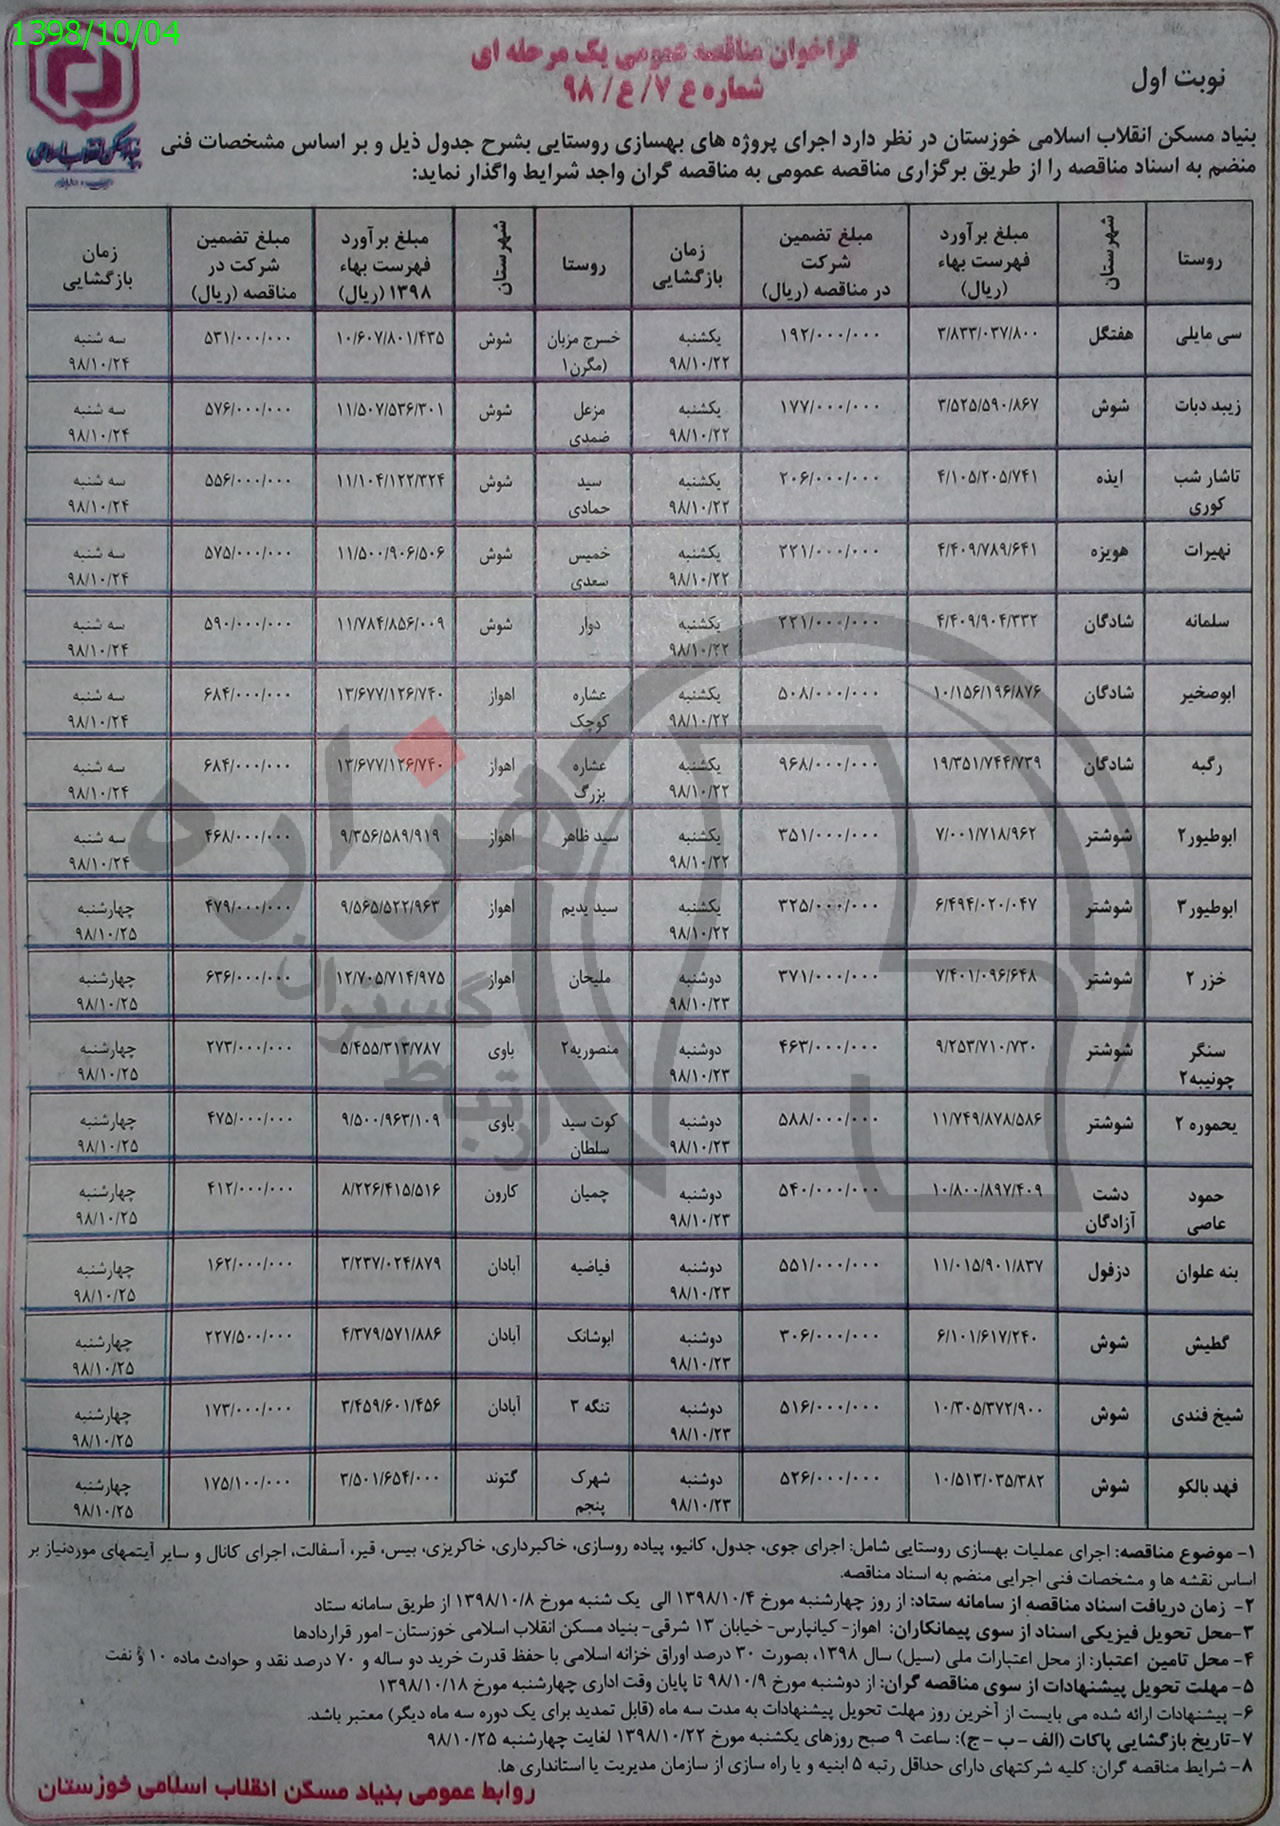 1398/10/04
فراخوان مناقصه عمومی یک مرحله ای
شماره ع ۷/ ع/ ۹۸
نوبت اول
بنیاد مسکن انقلاب اسلامی
بنیاد مسکن انقلاب اسلامی خوزستان در نظر دارد اجرای پروژه های بهسازی روستایی بشرح جدول ذیل و بر اساس مشخصات فنی
منضم به اسناد مناقصه را از طریق برگزاری مناقصه عمومی به مناقصه گران واجد شرایط واگذار نماید:
روستا شهرستان مبلغ برآورد فهرست بهاء (ریال) مبلغ تضمین شرکت در مناقصه (ریال) زمان بازگشایی روستا شهرستان مبلغ برآورد فهرست بهاء ۱۳۹۸ (ریال) مبلغ تضمین شرکت در مناقصه (ریال) زمان بازگشایی
سی مایلی هفتگل ۳/۸۳۳/۰۳۷/۸۰۰ ۱۹۲/۰۰۰/۰۰۰ یکشنبه ۹۸/۱۰/۲۲ خسرج مزبان (مگرن۱ شوش ۱۰/۶۰۷/۸۰۱/۴۳۵ ۵۳۱/۰۰۰/۰۰۰ سه شنبه ۹۸/۱۰/۲۴
زیبد دبات شوش ۳/۵۲۵/۵۹۰/۸۶۷ ۱۷۷/۰۰۰/۰۰۰ یکشنبه ۹۸/۱۰/۲۲ مزعل ضمدی شوش ۱۱/۵۰۷/۵۳۶/۳۰۱ ۵۷۶/۰۰۰/۰۰۰ سه شنبه ۹۸/۱۰/۲۴
تاشار شب کوری ایذه ۴/۱۰۵/۲۰۵/۷۴۱ ۲۰۶/۰۰۰/۰۰۰ یکشنبه ۹۸/۱۰/۲۲ سید حمادی شوش ۱۱/۱۰۴/۱۲۲/۳۲۴ ۵۵۶/۰۰۰/۰۰۰ سه شنبه ۹۸/۱۰/۲۴
نهیرات هویزه ۴/۴۰۹/۷۸۹/۶۴۱ ۲۲۱/۰۰۰/۰۰۰ یکشنبه ۹۸/۱۰/۲۲ خمیس سعدی شوش ۱۱/۵۰۰/۹۰۶/۵۰۶ ۵۷۵/۰۰۰/۰۰۰ سه شنبه ۹۸/۱۰/۲۴
سلمانه شادگان ۴/۴۰۹/۹۰۴/۳۳۲ ۲۲۱/۰۰۰/۰۰۰ یکشنبه ۹۸/۱۰/۲۲ دوار شوش ۱۱/۷۸۴/۸۵۶/۰۰۹ ۵۹۰/۰۰۰/۰۰۰ سه شنبه ۹۸/۱۰/۲۴
ابوصخیر شادگان ۱۰/۱۵۶/۱۹۶/۸۷۶ ۵۰۸/۰۰۰/۰۰۰ یکشنبه ۹۸/۱۰/۲۲ عشاره کوچک اهواز ۱۳/۶۷۷/۱۲۶/۷۴۰ ۶۸۴/۰۰۰/۰۰۰ سه شنبه ۹۸/۱۰/۲۴
رگبه شادگان ۱۹/۳۵۱/۷۴۴/۷۳۹ ۹۶۸/۰۰۰/۰۰۰ یکشنبه ۹۸/۱۰/۲۲ عشاره بزرگ اهواز ۱۳/۶۷۷/۱۲۶/۷۴۰ ۶۸۴/۰۰۰/۰۰۰ سه شنبه ۹۸/۱۰/۲۴
ابوطیور۲ شوشتر ۷/۰۰۱/۷۱۸/۹۶۲ ۳۵۱/۰۰۰/۰۰۰ یکشنبه ۹۸/۱۰/۲۲ سید ظاهر اهواز ۹/۳۵۶/۵۸۹/۹۱۹ ۴۶۸/۰۰۰/۰۰۰ سه شنبه ۹۸/۱۰/۲۴
ابوطیور۳ شوشتر ۶/۴۹۴/۰۲۰/۰۴۷ ۳۲۵/۰۰۰/۰۰۰ یکشنبه ۹۸/۱۰/۲۲ سید یدیم اهواز ۹/۵۶۵/۵۲۲/۹۶۳ ۴۷۹/۰۰۰/۰۰۰ چهارشنبه ۹۸/۱۰/۲۵
خزر ۲ شوشتر ۷/۴۰۱/۰۹۶/۶۴۸ ۳۷۱/۰۰۰/۰۰۰ دوشنبه ۹۸/۱۰/۲۳ ملیحان اهواز ۱۲/۷۰۵/۷۱۴/۹۷۵ ۶۳۶/۰۰۰/۰۰۰ چهارشنبه ۹۸/۱۰/۲۵
سنگر چونیبه۲ شوشتر ۹/۲۵۳/۷۱۰/۷۳۰ ۴۶۳/۰۰۰/۰۰۰ دوشنبه ۹۸/۱۰/۲۳ منصوریه۲ باوی ۵/۴۵۵/۳۱۳/۷۸۷ ۲۷۳/۰۰۰/۰۰۰ چهارشنبه ۹۸/۱۰/۲۵
یحموره ۲ شوشتر ۱۱/۷۴۹/۸۷۸/۵۸۶ ۵۸۸/۰۰۰/۰۰۰ دوشنبه ۹۸/۱۰/۲۳ کوت سید سلطان باوی ۹/۵۰۰/۹۶۳/۱۰۹ ۴۷۵/۰۰۰/۰۰۰ چهارشنبه ۹۸/۱۰/۲۵
حمود عاصی دشت آزادگان ۱۰/۸۰۰/۸۹۷/۴۰۹ ۵۴۰/۰۰۰/۰۰۰ دوشنبه ۹۸/۱۰/۲۳ چمیان کارون ۸/۲۲۶/۴۱۵/۵۱۶ ۴۱۲/۰۰۰/۰۰۰ چهارشنبه ۹۸/۱۰/۲۵
بنه علوان دزفول ۱۱/۰۱۵/۹۰۱/۸۳۷ ۵۵۱/۰۰۰/۰۰۰ دوشنبه ۹۸/۱۰/۲۳ فیاضیه آبادان ۳/۲۳۷/۰۲۴/۸۷۹ ۱۶۲/۰۰۰/۰۰۰ چهارشنبه ۹۸/۱۰/۲۵
گطیش شوش ۶/۱۰۱/۶۱۷/۲۴۰ ۳۰۶/۰۰۰/۰۰۰ دوشنبه ۹۸/۱۰/۲۳ ابوشانک آبادان ۴/۳۷۹/۵۷۱/۸۸۶ ۲۲۷/۵۰۰/۰۰۰ چهارشنبه ۹۸/۱۰/۲۵
شیخ فندی شوش ۱۰/۳۰۵/۳۷۲/۹۰۰ ۵۱۶/۰۰۰/۰۰۰ دوشنبه ۹۸/۱۰/۲۳ تنگه ۳ آبادان ۳/۴۵۹/۶۰۱/۴۵۶ ۱۷۳/۰۰۰/۰۰۰ چهارشنبه ۹۸/۱۰/۲۵
فهد بالکو شوش ۱۰/۵۱۳/۰۳۵/۳۸۲ ۵۲۶/۰۰۰/۰۰۰ دوشنبه ۹۸/۱۰/۲۳ شهرک پنجم گتوند ۳/۵۰۱/۶۵۴/۰۰۰ ۱۷۵/۱۰۰/۰۰۰ چهارشنبه ۹۸/۱۰/۲۵
هزاره
گستران
ارتباط
۱- موضوع مناقصه: اجرای عملیات بهسازی روستایی شامل: اجرای جوی، جدول، کانیو، پیاده روسازی، خاکبرداری، خاکریزی، بیس، قیر، آسفالت، اجرای کانال و سایر آیتمهای موردنیاز بر
اساس نقشه ها و مشخصات فنی اجرایی منضم به اسناد مناقصه.
۲- زمان دریافت اسناد مناقصه از سامانه ستاد: از روز چهارشنبه مورخ ۱۳۹۸/۱۰/۴ الی یک شنبه مورخ ۱۳۹۸/۱۰/۸ از طریق سامانه ستاد
۳-محل تحویل فیزیکی اسناد از سوی پیمانکاران: اهواز- کیانپارس- خیابان ۱۳ شرقی- بنیاد مسکن انقلاب اسلامی خوزستان- امور قراردادها
۴- محل تامین اعتبار: از محل اعتبارات ملی (سیل) سال ۱۳۹۸، بصورت ۳۰ درصد اوراق خزانه اسلامی با حفظ قدرت خرید دو ساله و ۷۰ درصد نقد و حوادث ماده ۱۰ و نفت
۵- مهلت تحویل پیشنهادات از سوی مناقصه گران: از دوشنبه مورخ ۹۸/۱۰/۹ تا پایان وقت اداری چهارشنبه مورخ ۱۳۹۸/۱۰/۱۸
۶- پیشنهادات ارائه شده می بایست از آخرین روز مهلت تحویل پیشنهادات به مدت سه ماه (قابل تمدید برای یک دوره سه ماه دیگر) معتبر باشد.
۷-تاریخ بازگشایی پاکات (الف - ب - ج): ساعت ۹ صبح روزهای یکشنبه مورخ ۱۳۹۸/۱۰/۲۲ لغایت چهارشنبه ۹۸/۱۰/۲۵
۸- شرایط مناقصه گران: کلیه شرکتهای دارای حداقل رتبه ۵ ابنیه و یا راه سازی از سازمان مدیریت یا استانداری ها.
روابط عمومی بنیاد مسکن انقلاب اسلامی خوزستان